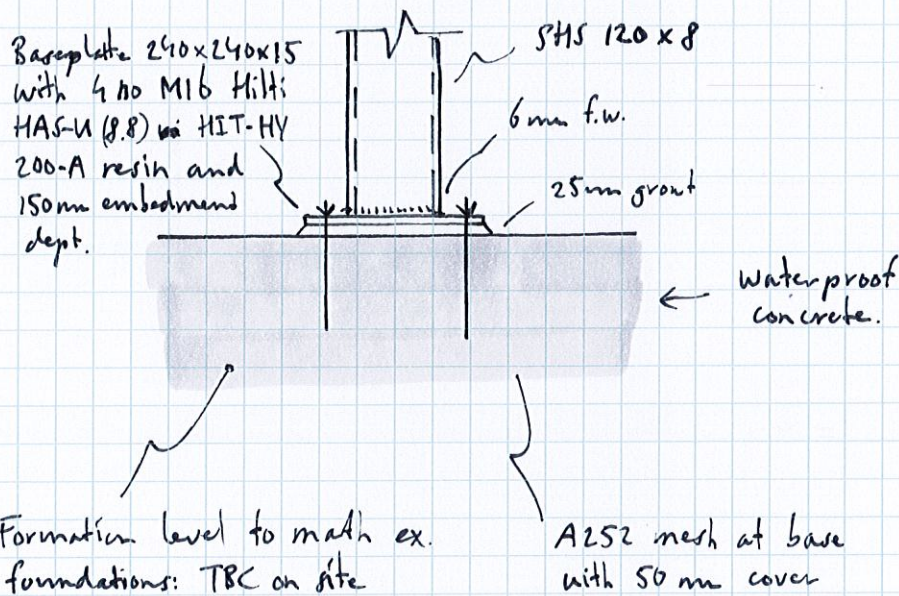 Baseplate 240x240x15
with 4 no M16 Hilti
HAS-U (8.8) HIT-HY
200-A resin and
150mm embedmend
dept.
SHS 120 x 8
6mm f.w.
25mm grout
waterproof
concrete.
Formation level to math ex.
foundations: TBC on site
A252 mesh at base
with 50 mm cover